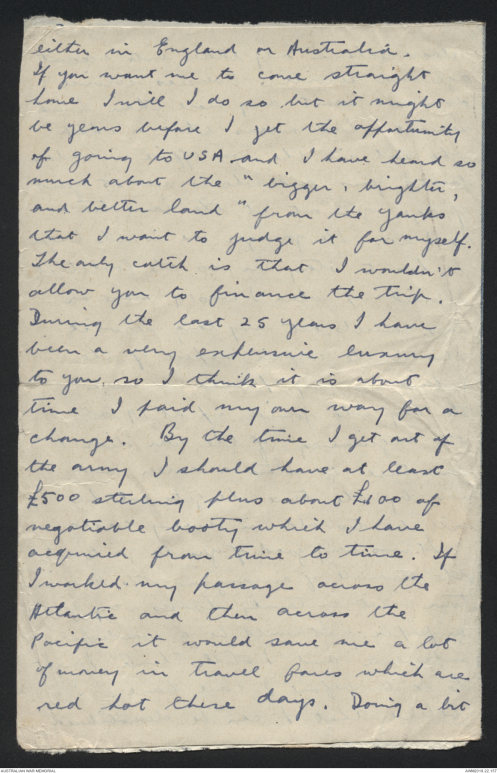 either in England or Australia.
If you want me to come straight
home I will I do so but it might
be years before I get the opportunity
of going to USA and I have heard so
much about the "bigger, brighter,
and better land" from the Yanks
that I want to judge it for myself.
The only catch is that I wouldn't
allow you to finance the trip.
During the last 25 years I have
been a very expensive luxury
to you, so I think it is about
time I paid my own way for a
change. By the time I get out of
the army I should have at least
£500 sterling plus about £100 of
negotiable booty which I have
acquired from time to time. If
I worked my passage across the
Atlantic and then across the
Pacific it would save me a lot
of money in travel fares which are
red hot these days. Doing a bit
AUSTRALIAN WAR MEMORIAL